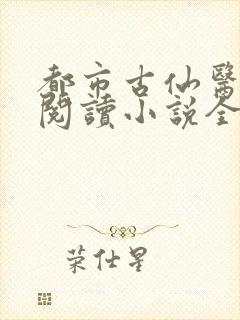 都市古仙醫
閱讀小說全
荣仕星